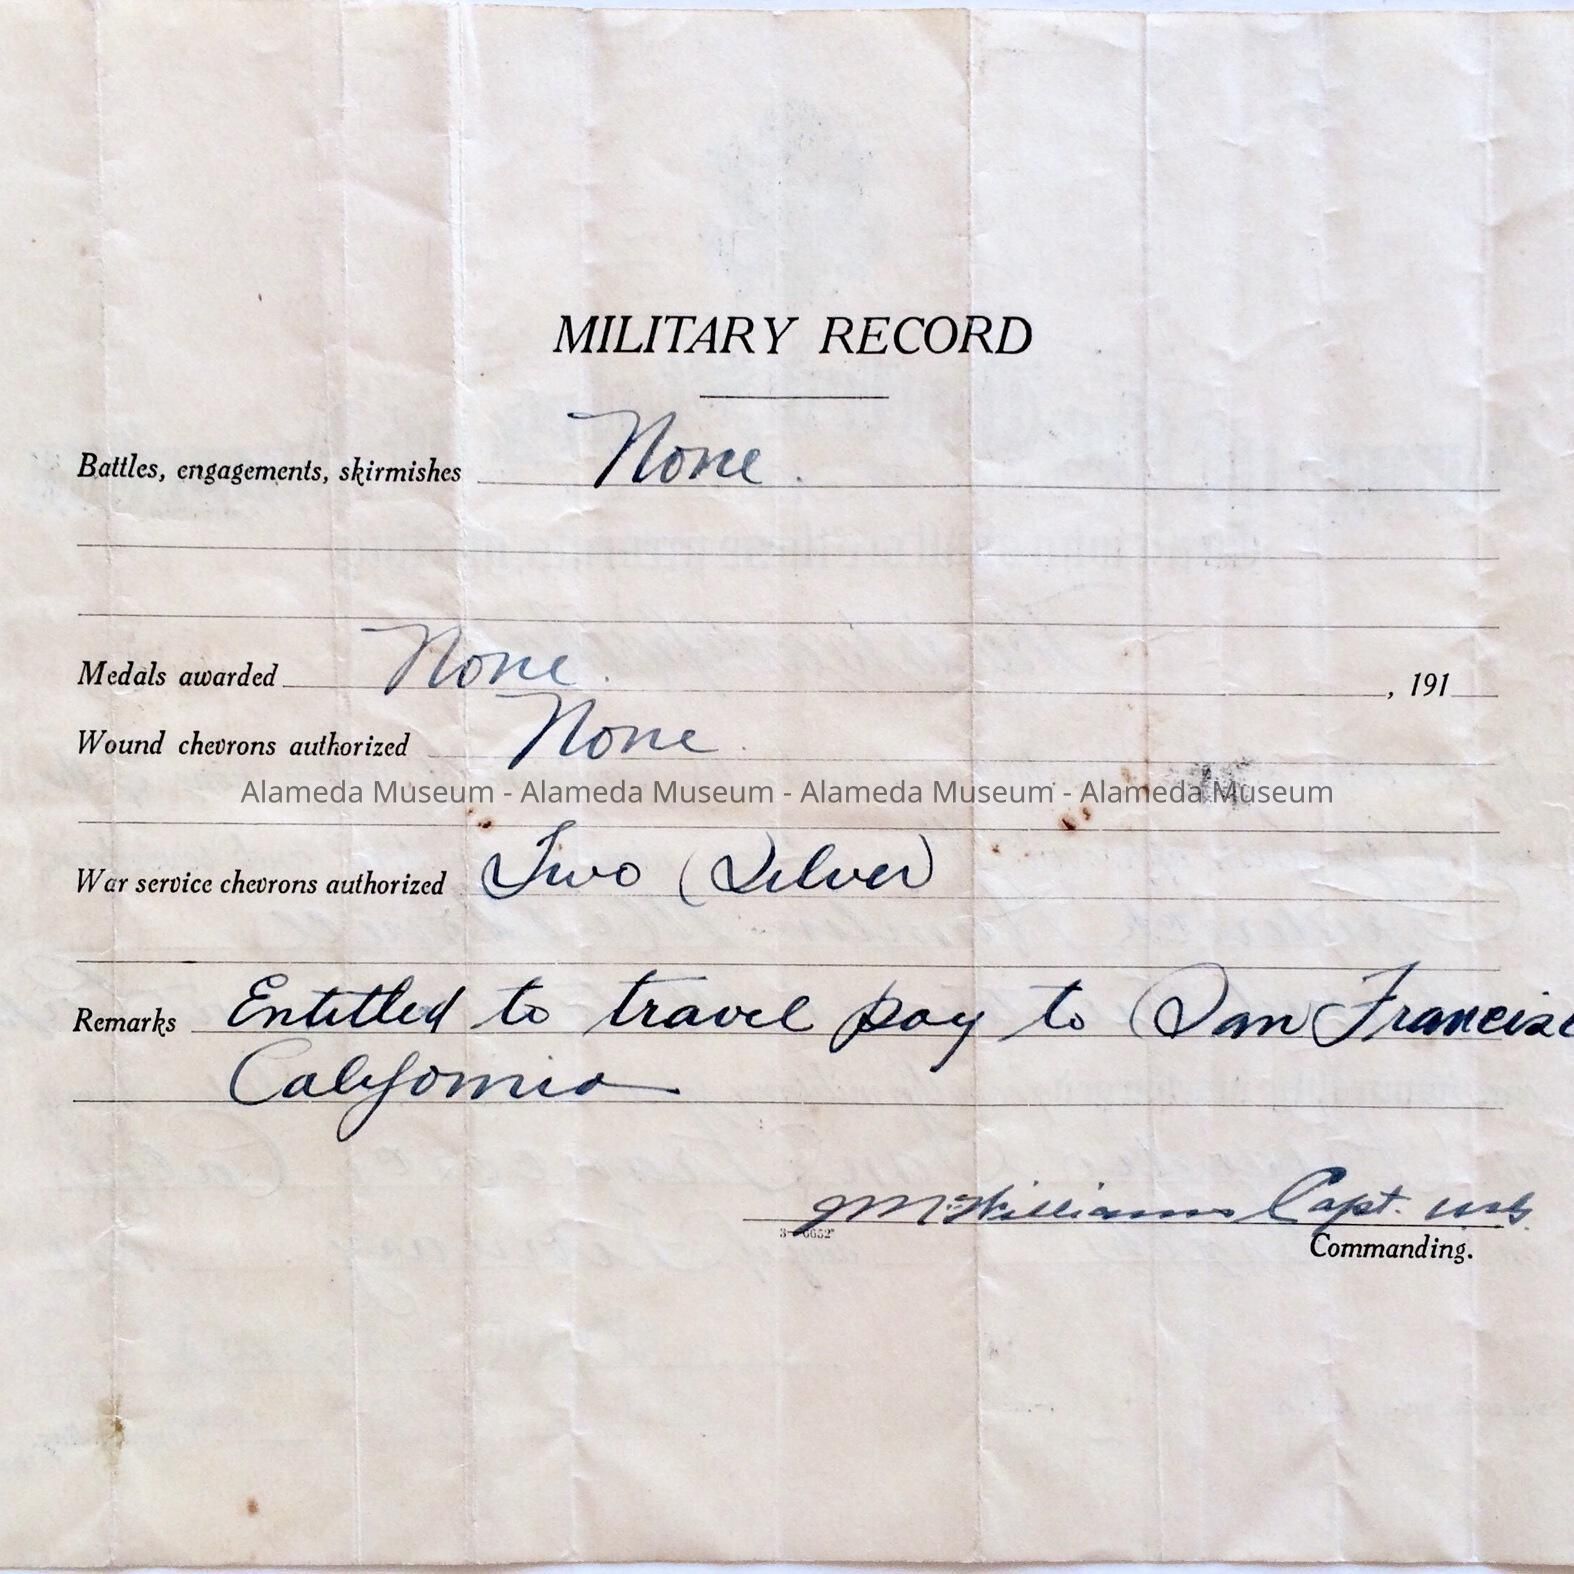 MILITARY RECORD
Battles, engagements, skirmishes None.
Medals awarded None. , 191
Wound chevrons authorized None.
Alameda Museum - Alameda Museum - Alameda Museum - Alameda Museum
War service chevrons authorized Two (Silver)
Remarks Entitled to travel pay to San Francisc
California
McWilliams Capt.
Commanding.